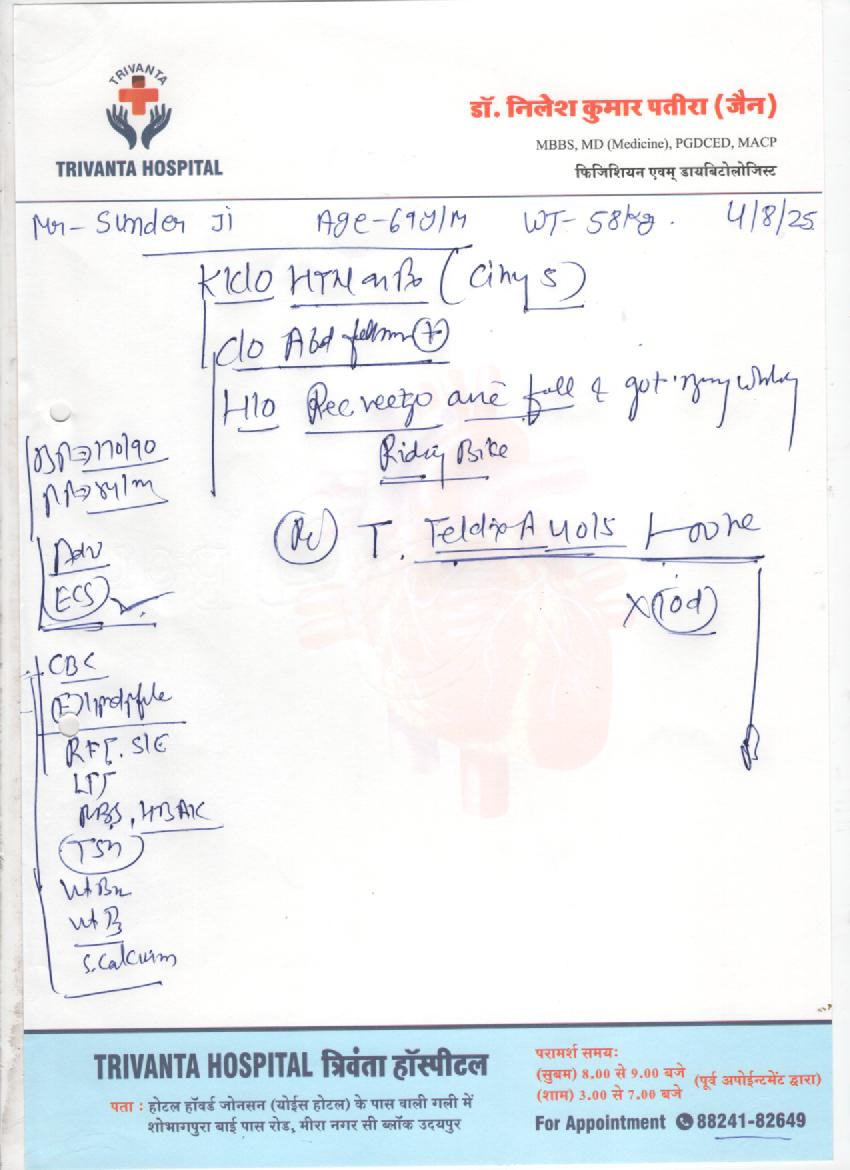 TRIVANTA
TRIVANTA HOSPITAL
डॉ. निलेश कुमार पतीरा (जैन)
MBBS, MD (Medicine), PGDCED, MACP
फिजिशियन एवम् डायबिटोलोजिस्ट
Mr- Sunder Ji Age-69y/M WT- 58kg. 4/8/25
K/c/o HTN on (
C/o Abd +
H/o Rec fall & got
Riding Bike
BP→170/90
PR→84/m
Rx T. 40/5
X 10d
Adv
ECG
CBC
RFT. S/E
LFT
RBS, HBA1C
TSH
Vit B12
Vit D3
S. Calcium
TRIVANTA HOSPITAL त्रिवंता हॉस्पीटल
पता : होटल हॉवर्ड जोनसन (योईस होटल) के पास वाली गली में
शोभागपुरा बाई पास रोड, मीरा नगर सी ब्लॉक उदयपुर
परामर्श समयः
(सुबम) 8.00 से 9.00 बजे (पूर्व अपोईन्टमेंट द्वारा)
(शाम) 3.00 से 7.00 बजे
For Appointment 88241-82649